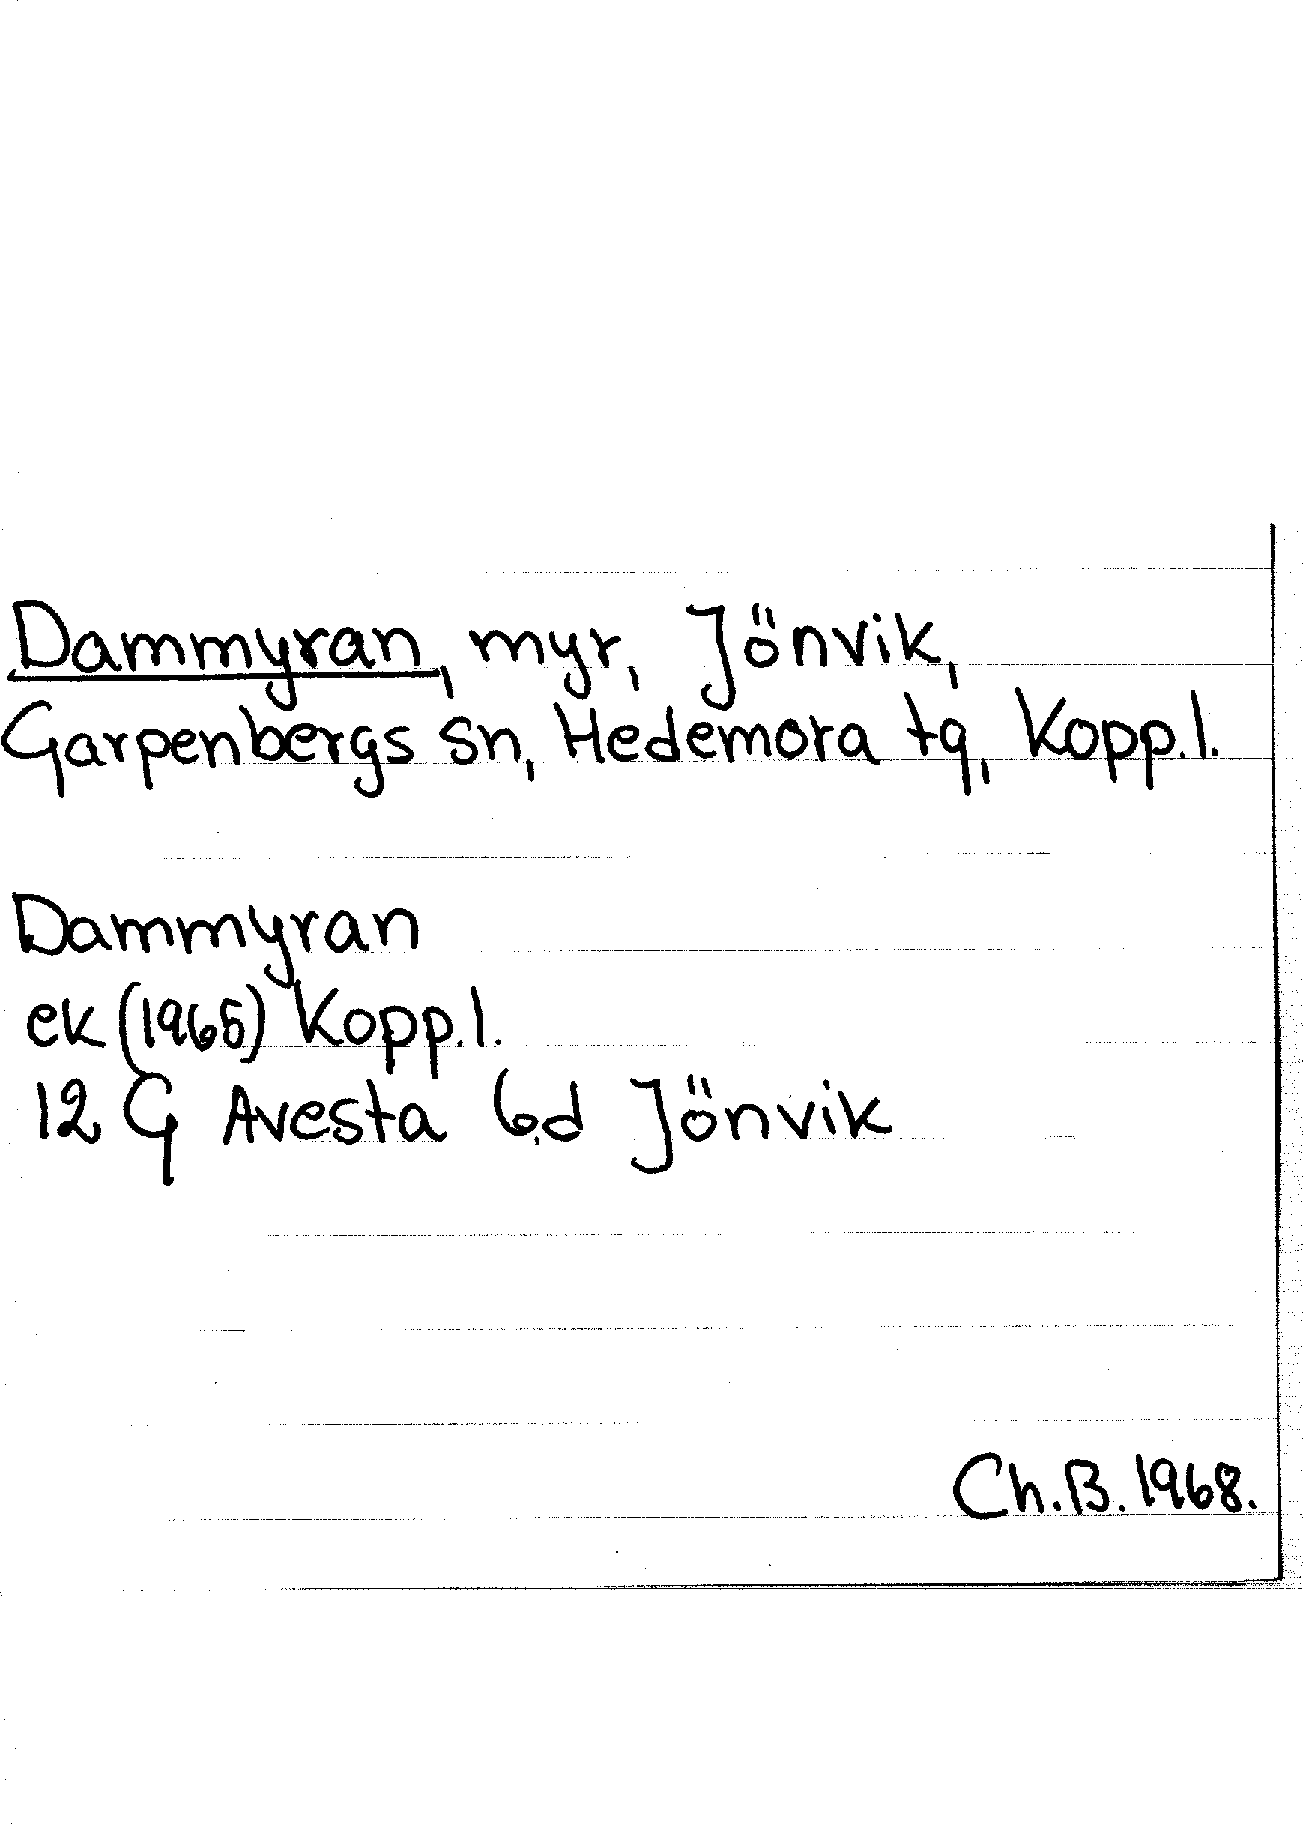 Dammyran, myr, Jönvik,
Garpenbergs sn, Hedemora tg, Kopp.l.
Dammyran
ek (1965) Kopp.l.
12 G Avesta 6d Jönvik
Ch.B. 1968.